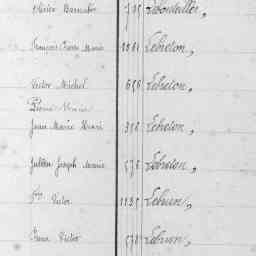 Lebouteiller,
François Pierre Marie Lebreton,
Victor Michel 656 Lebreton,
Pierre Marie
Jean Marie Henri 398 Lebreton,
Julien Joseph Marie 575 Lebreton,
Victor 1135 Lebrun,
Victor 578 Lebrun,